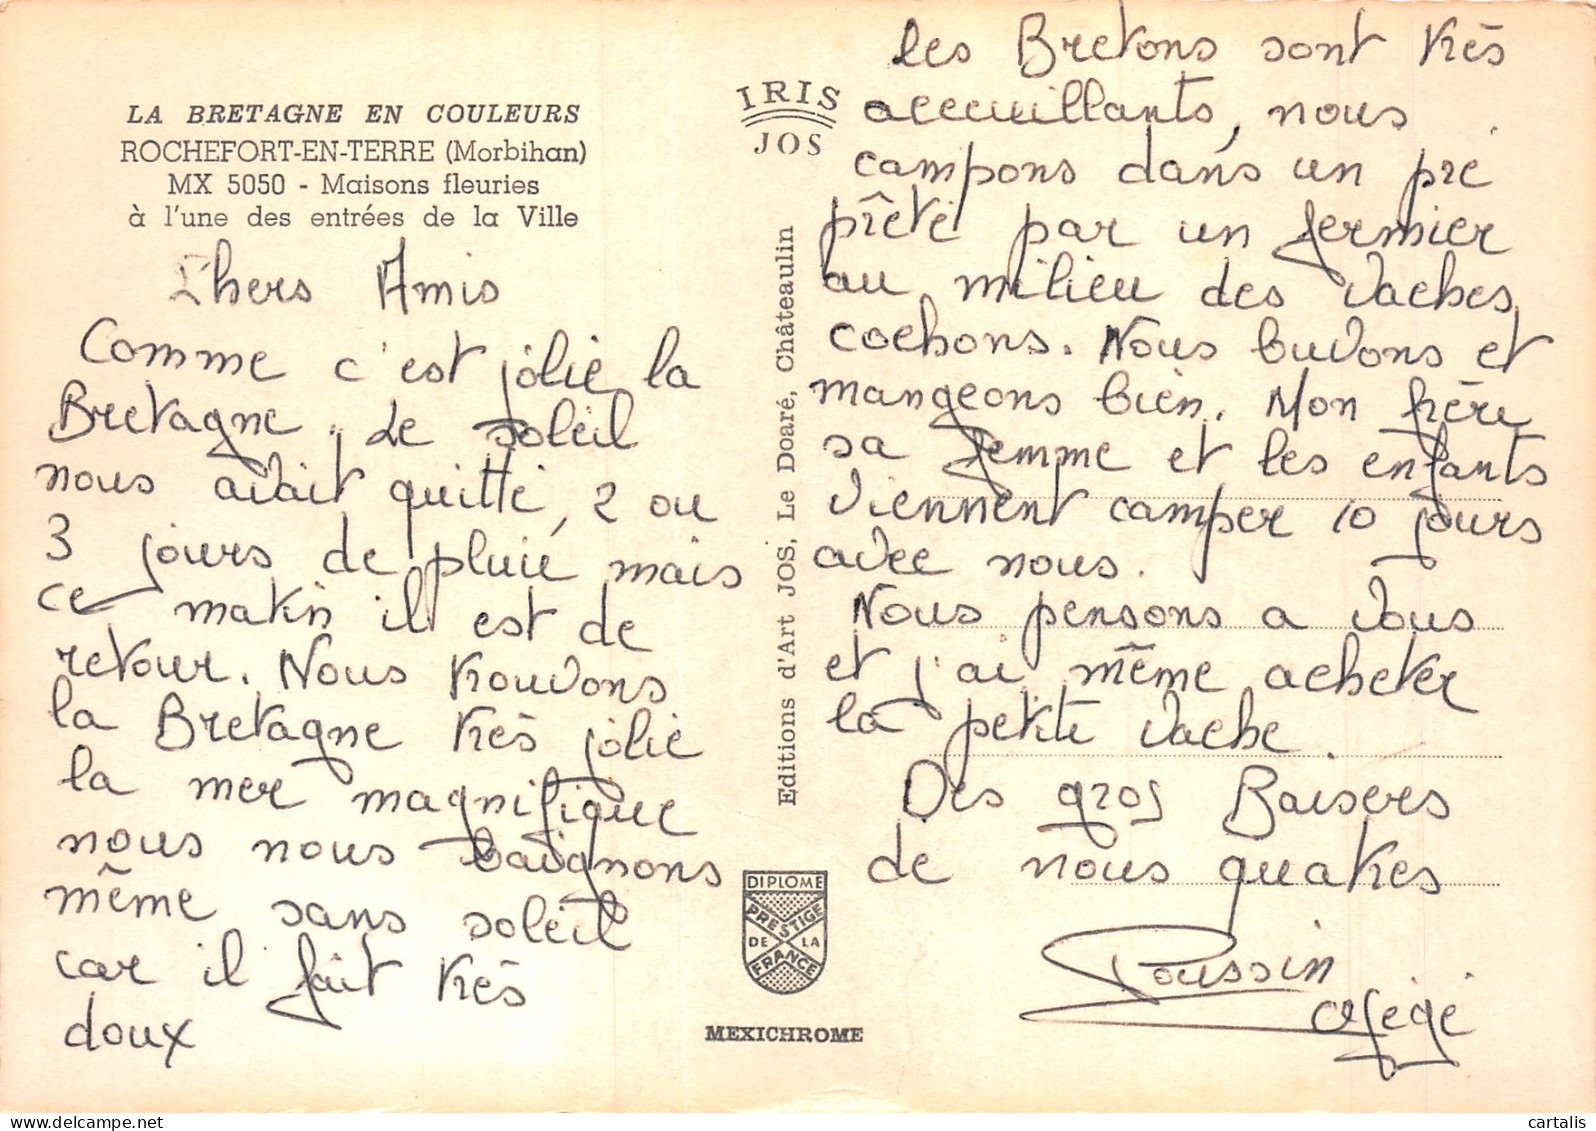 LA BRETAGNE EN COULEURS
ROCHEFORT-EN-TERRE (Morbihan)
MX 5050 - Maisons fleuries
à l'une des entrées de la Ville
Chers Amis
Comme c'est jolie la
Bretagne. Le soleil
nous avait quitté, 2 ou
3 jours de pluie mais
ce matin il est de
retour. Nous trouvons
la Bretagne très jolie
la mer magnifique
nous nous baignons
même sans soleil
car il fait très
doux
IRIS
JOS
Editions d'Art JOS, Le Doaré, Châteaulin
DIPLOME
PRESTIGE
DE LA
FRANCE
MEXICHROME
les Bretons sont très
acceuillants, nous
campons dans un pré
prêté par un fermier
au milieu des vaches,
cochons. Nous buvons et
mangeons bien. Mon frère
sa femme et les enfants
viennent camper 10 jours
avec nous.
Nous pensons a vous
et j'ai même acheter
la petite vache.
Des gros Baisers
de nous quatres
Poussin
delcampe.net
cartalis